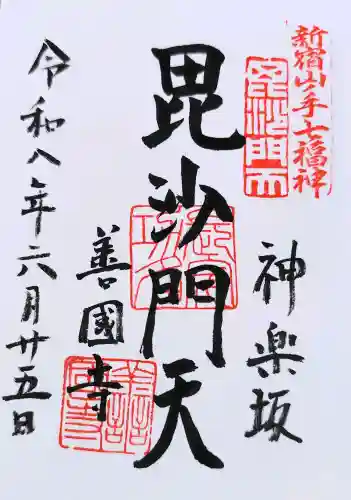 新宿山ノ手七福神
毘沙門天
神楽坂
毘沙門天
善國寺
令和八年六月廿五日